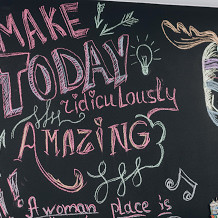 MAKE
TODAY
ridiculously
AMAZING
!
A woman place is